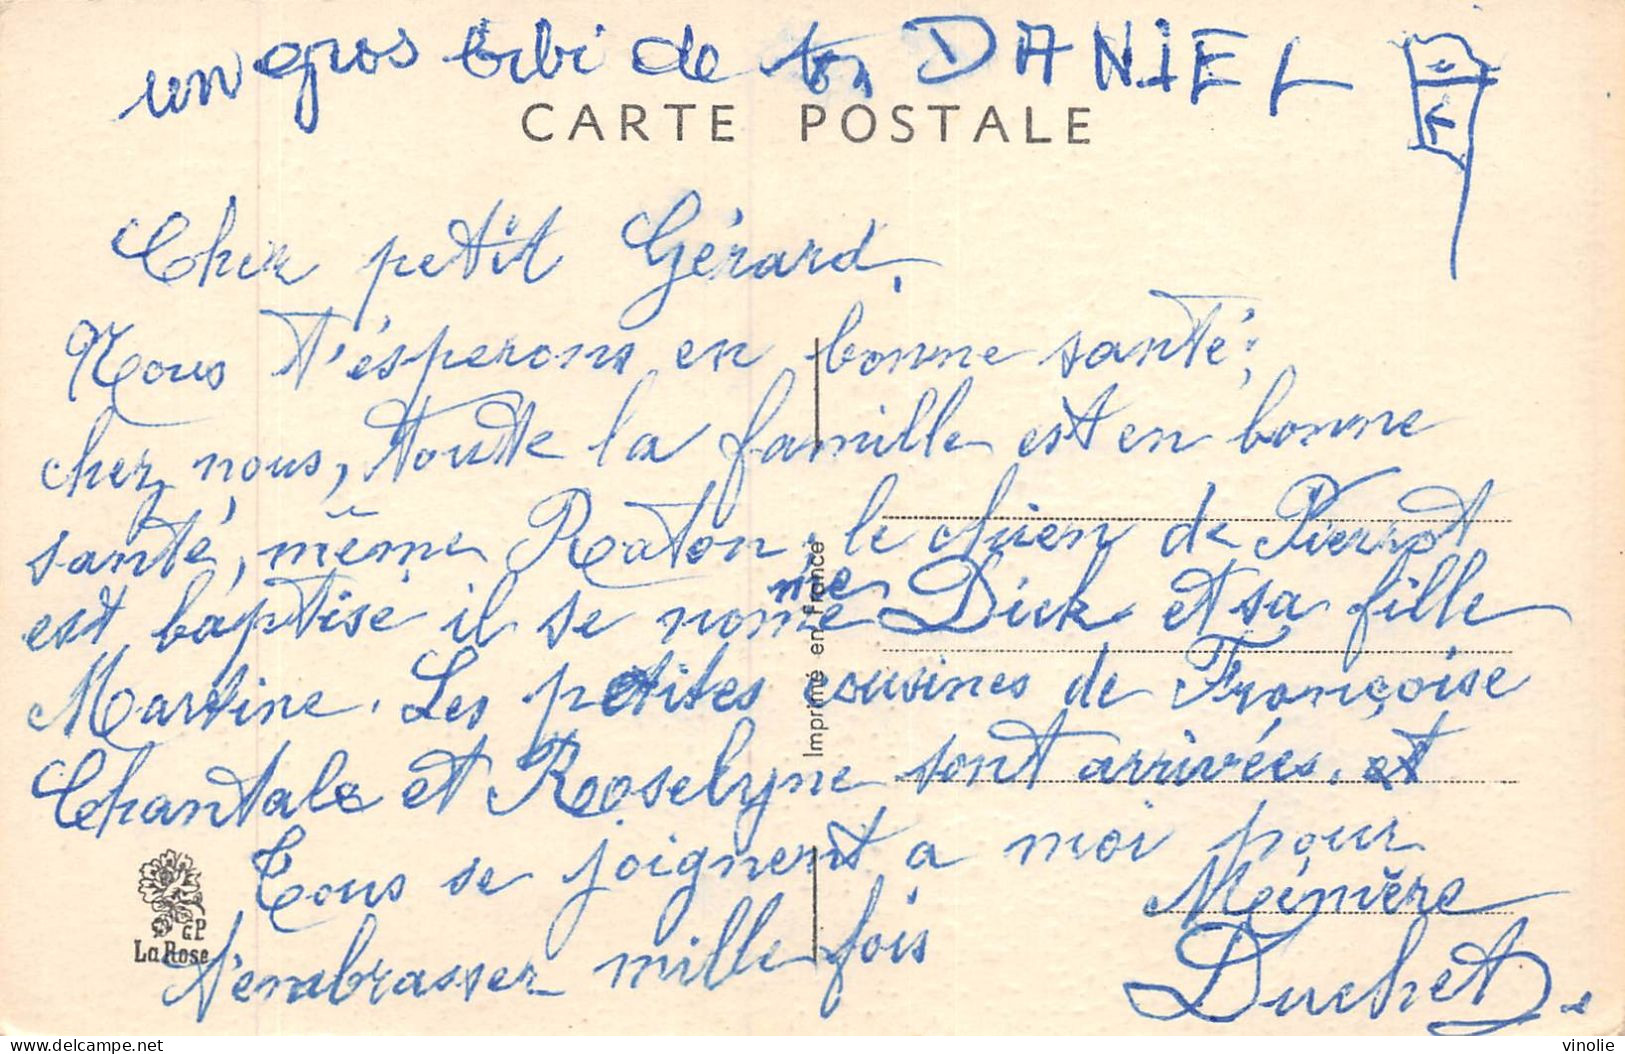 un gros bibi de ton DANIEL
CARTE POSTALE
Cher petit Gérard,
Nous t'ésperons en bonne santé;
chez nous, toute la famille est en bonne
santé, même Raton, le chien de Pierrot
est baptisé il se nomme Dick et sa fille
Martine. Les petites cousines de Françoise
Chantale et Roselyne sont arrivées, et
Tous se joignent a moi pour
t'embrasser mille fois
Mémère
Duchet.
Imprimé en france
GP
La Rose
delcampe.net
vinolie